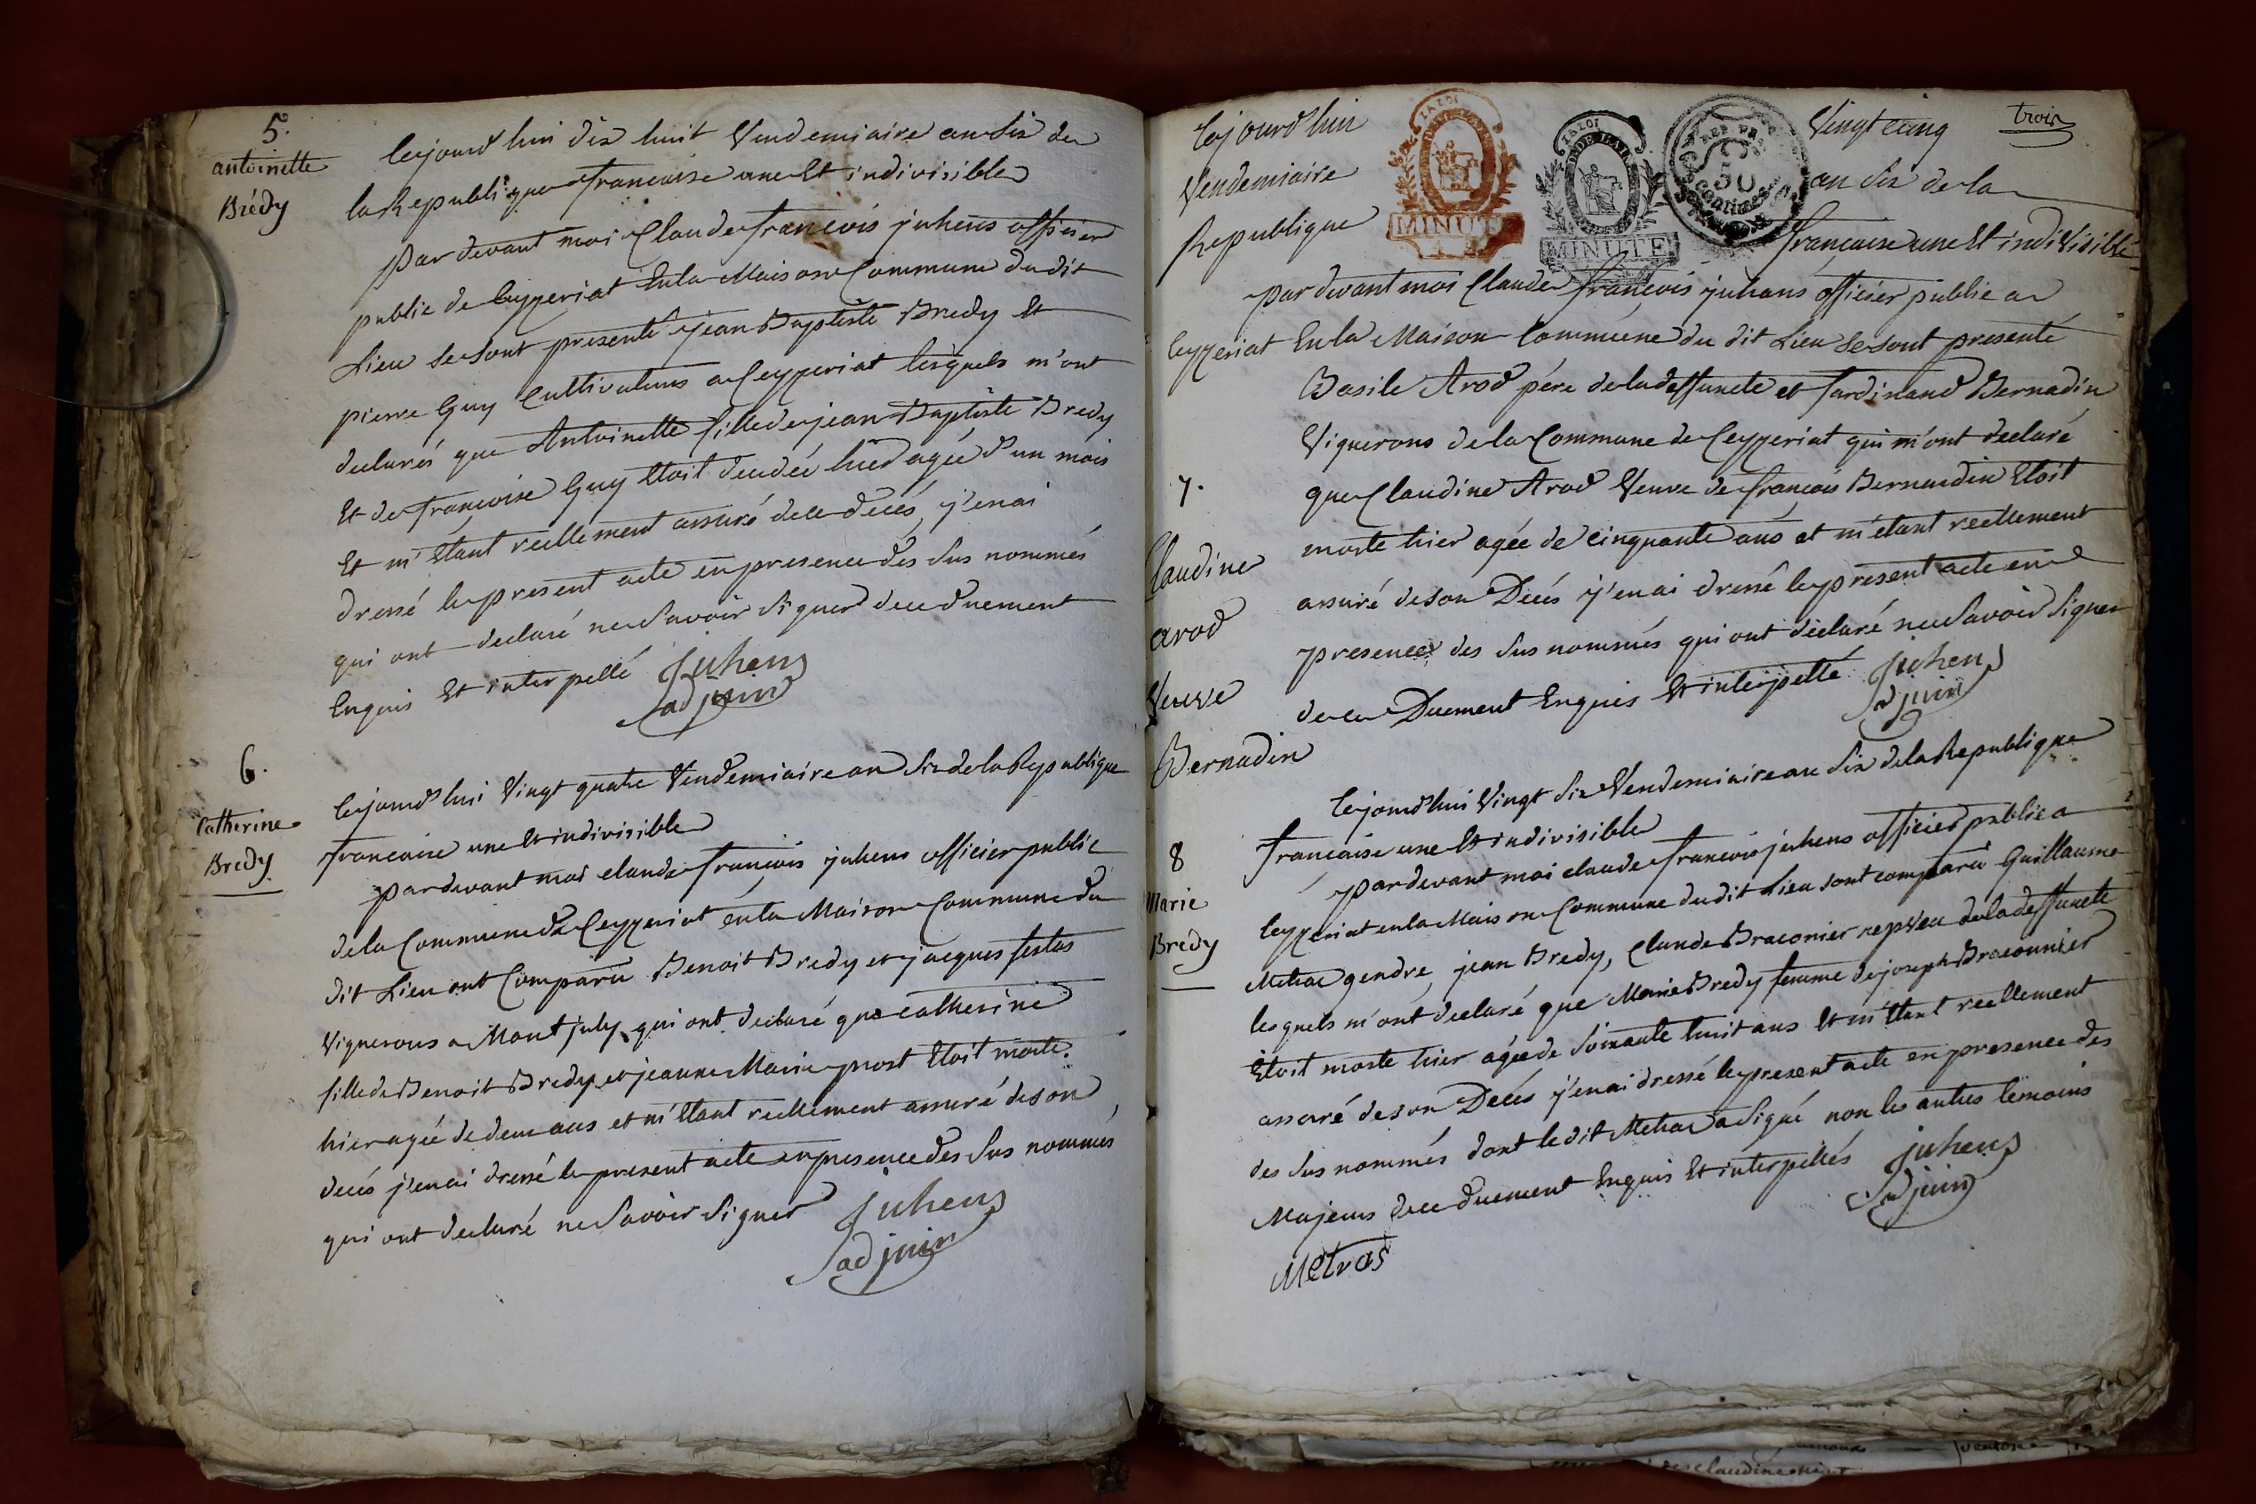 5.
antoinette
Brédy
Cejourd'hui dix huit Vendemiaire an Six de
la Republique francaise une Et indivisible
pardevant moi Claude francois juhens officier
public de Ceyzeriat En la Maison Commune dudit
Lieu Se Sont presenté jean Baptiste Bredy Et
pierre Guy Cultivateurs a Ceyzeriat lesquels m'ont
declarés que Antoinette fille de jean Baptiste Bredy
Et de francoise Guy Etoit decedée hier agée d'un mois
Et m'étant reellement assuré de ce decés, j'en ai
dressé le present acte en presence des Sus nommés
qui ont declaré ne Savoir Signer de ce duement
Enquis Et interpellé Juhens
adjoint
6.
Catherine
Bredy
Cejourd'hui Vingt quatre Vendemiaire an Six de la Republique
francaise une Et indivisible
pardevant moi claude francois juhens officier public
de la Commune de Ceyzeriat en la Maison Commune du
dit Lieu ont Comparu Benoit Bredy et jacques
Vignerons a Mont july qui ont declaré que catherine
fille de Benoit Bredy et jeanne Marie prost Etoit morte
hier agée de deux ans et m'Etant reellement assuré de son
decés j'en ai dressé le present acte en presence des Sus nommés
qui ont declaré ne Savoir Signer Juhens
adjoint
trois
Cejourd'hui Vingt cinq
Vendemiaire an Six de la
Republique francaise une Et indivisible
LA LOI
MINUTE
LA LOI
MINUTE
50
Centimes
pardevant moi Claude francois juhans officier public a
Ceyzeriat En la Maison Commune du dit Lieu Se Sont presenté
Basile Arod pére de la deffuncte et fardinand Bernadin
Vignerons de la Commune de Ceyzeriat qui m'ont declaré
que Claudine Arod Veuve de francois Bernardin Etoit
morte hier agée de cinquante ans et m'étant reellement
assuré de son Décés j'en ai dressé le present acte en
presence des Sus nommés qui ont déclaré ne Savoir Signer
de ce Duement Enquis Et interpellé Juhens
adjoint
7.
Claudine
arod
Veuve
Bernadin
Cejourd'hui Vingt Six Vendemiaire an Six de la Republique
francaise une Et indivisible
pardevant moi claude francois juhens officier public a
Ceyzeriat en la Maison Commune du dit Lieu sont comparu Guillaume
Metras gendre, jean Bredy, Claude Braconier nepveu de la deffuncte
lesquels m'ont declaré que Marie Bredy femme de joseph Braconnier
Etoit morte hier agée de Soixante huit ans Et m'Etant reellement
assuré de son Décés j'en ai dressé le present acte en presence des
des Sus nommés dont le dit Metras a Signé non les autres temoins
Majeurs de ce duement Enquis Et interpellés juhens
adjoint
Metras
8
Marie
Bredy